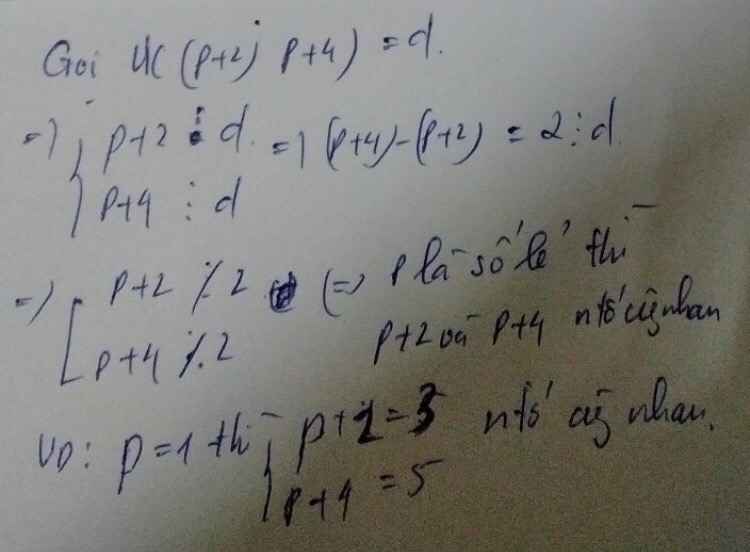 Gọi ƯC (p+2, p+4) = d.
=> { p+2 ⋮ d. => (p+4)-(p+2) = 2 ⋮ d
p+4 ⋮ d
=> [ p+2 ⋮̸ 2 <=> p là số lẻ thì
p+4 ⋮̸ 2 p+2 và p+4 ntố cùng nhau
VD: p=1 thì { p+2=3 ntố cùng nhau.
p+4 = 5